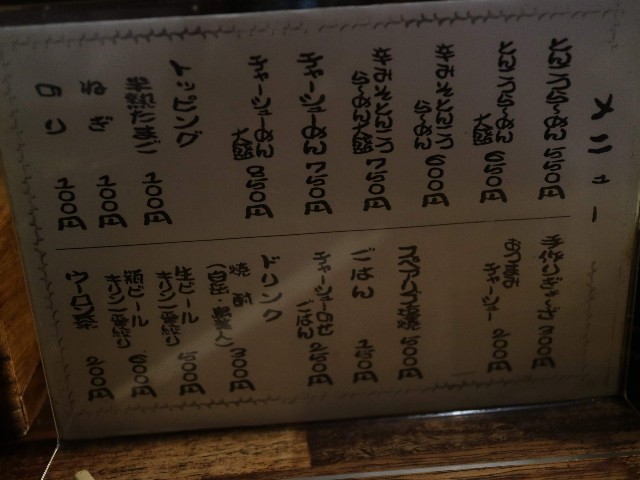 メニュー
とんこつらーめん 550円
とんこつらーめん
大盛 650円
辛みそとんこつ
らーめん 600円
辛みそとんこつ
らーめん大盛 750円
チャーシューめん 750円
チャーシューめん
大盛 850円
トッピング
半熟たまご 100円
ねぎ 100円
のり 100円
手作りぎょうざ 300円
おつまみ
チャーシュー 200円
スペアリブ 500円
ごはん 150円
チャーシュー
ごはん 250円
ドリンク
焼酎
300円
生ビール
キリン一番搾り 500円
瓶ビール
キリン一番搾り 600円
ウーロン茶 200円